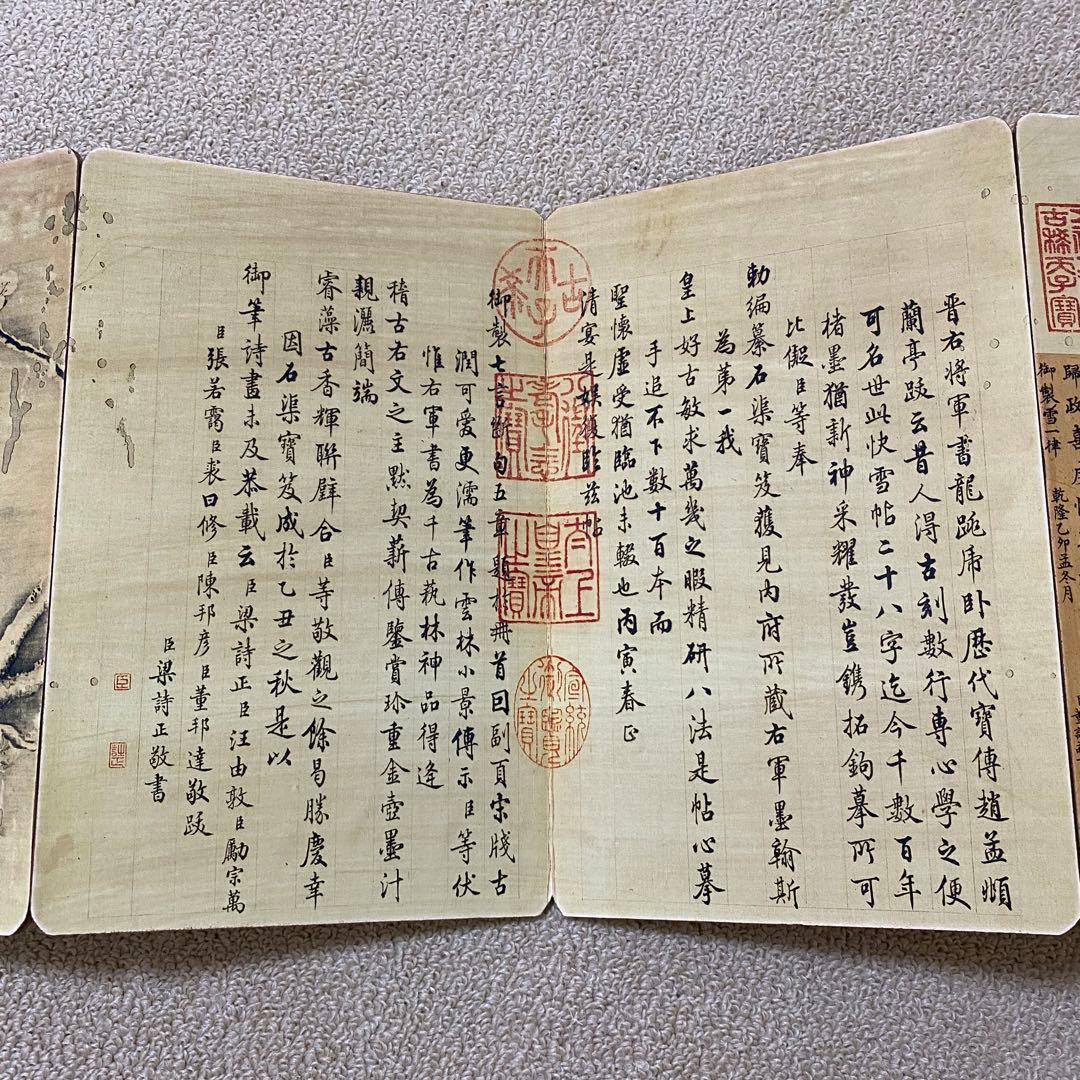 古稀天子寶
歸政
御製雪一律
乾隆乙卯孟冬月
晉右將軍書龍跳虎臥歷代寶傳趙孟頫
蘭亭跋云昔人得古刻數行專心學之便
可名世此快雪帖二十八字迄今千數百年
楮墨猶新神采耀發豈鐫拓鉤摹所可
比儗臣等奉
勅編纂石渠寶笈獲見內府所藏右軍墨翰斯
為第一我
皇上好古敏求萬幾之暇精研八法是帖心摹
手追不下數十百本而
聖懷虛受猶臨池未輟也丙寅春正
清宴是娛復臨茲帖
御製七言斷句五章題於冊首回副頁宋牋古
潤可愛更濡筆作雲林小景傳示臣等伏
惟右軍書為千古藝林神品得逢
稽古右文之主默契薪傳鑒賞珍重金壺墨汁
親灑簡端
睿藻古香輝聯璧合臣等敬觀之餘曷勝慶幸
因石渠寶笈成於乙丑之秋是以
御筆詩畫未及恭載云臣梁詩正臣汪由敦臣勵宗萬
臣張若靄臣裘曰修臣陳邦彥臣董邦達敬跋
臣梁詩正敬書
古希天子
乾隆
太上皇帝之寶
宣統御覽之寶
臣